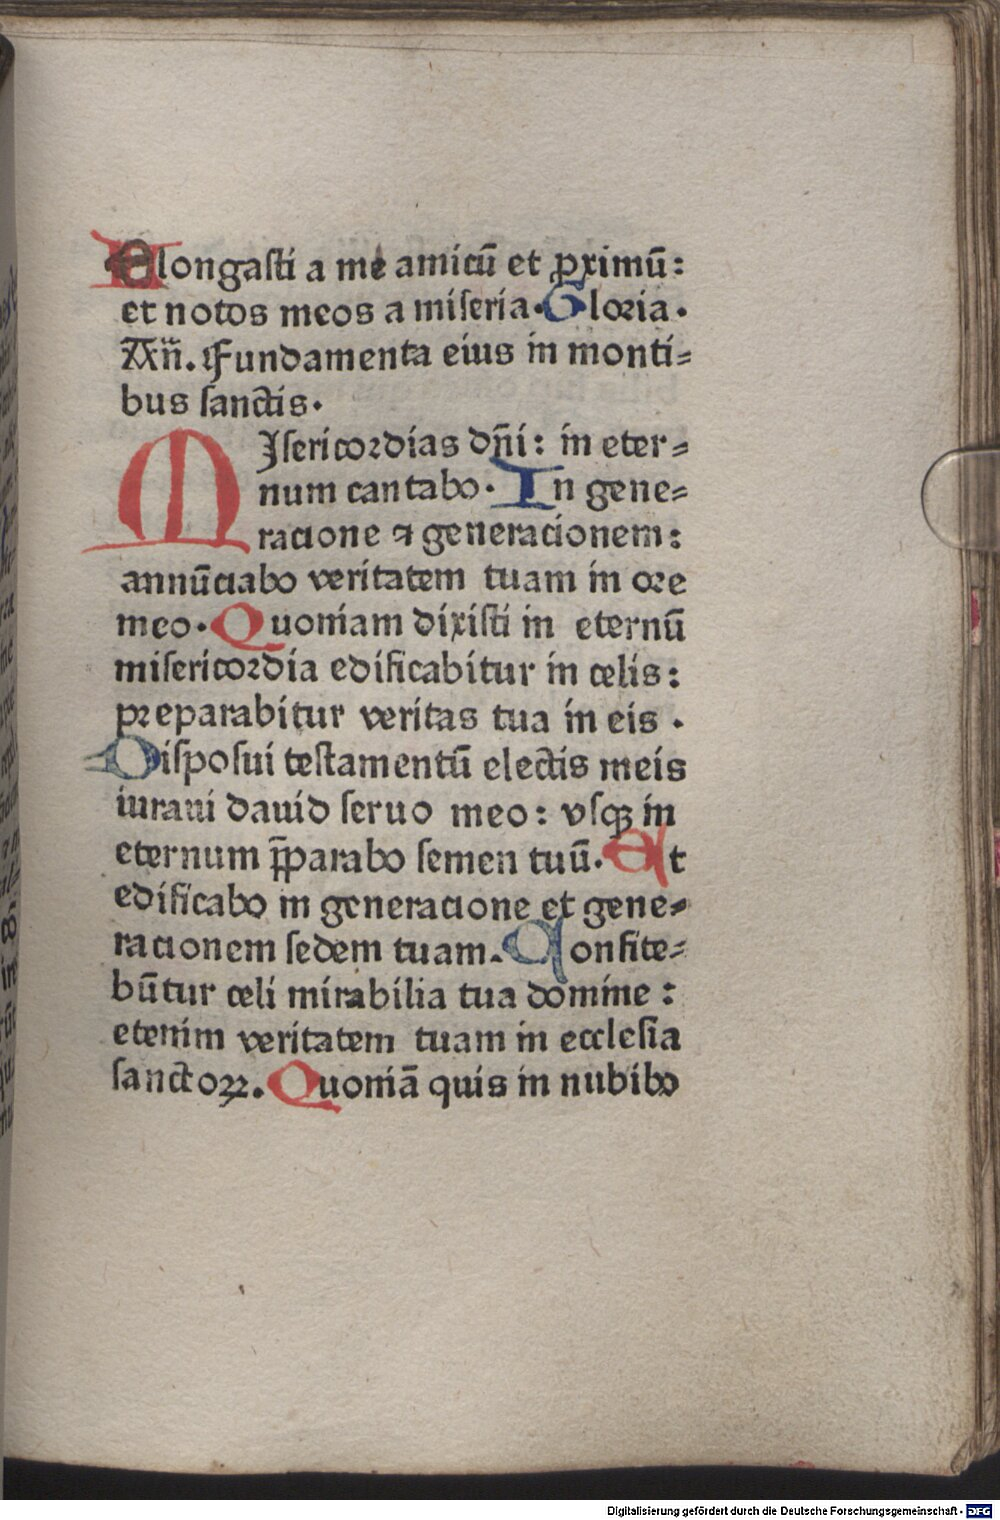 Elongasti a me amicū et ꝓximū:
et notos meos a miseria. Gloria.
Añ. Fundamenta eius in monti=
bus sanctis.
MIsericordias dñi: in eter=
num cantabo. In gene=
racione ⁊ generacionem:
annūciabo veritatem tuam in ore
meo. Quoniam dixisti in eternū
misericordia edificabitur in celis:
preparabitur veritas tua in eis.
Disposui testamentū electis meis
iuraui dauid seruo meo: vsqꝫ in
eternum p̄parabo semen tuū. Et
edificabo in generacione et gene=
racionem sedem tuam. Confite=
būtur celi mirabilia tua domine:
etenim veritatem tuam in ecclesia
sanctoꝝ. Quoniā quis in nubibꝰ
Digitalisierung gefördert durch die Deutsche Forschungsgemeinschaft - DFG